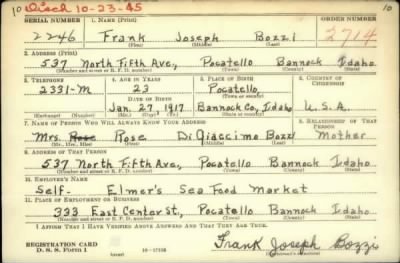 10 Disch 10-23-45 10
SERIAL NUMBER 1. NAME (Print) ORDER NUMBER
2246 Frank Joseph Bozzi 2714
(First) (Middle) (Last)
2. ADDRESS (Print)
537 North Fifth Ave., Pocatello Bannock Idaho
(Number and street or R. F. D. number) (Town) (County) (State)
3. TELEPHONE 4. AGE IN YEARS 5. PLACE OF BIRTH 6. COUNTRY OF CITIZENSHIP
2331-M 23 Pocatello,
DATE OF BIRTH (Town or county)
Jan. 27, 1917 Bannock Co., Idaho U.S.A.
(Exchange) (Number) (Mo.) (Day) (Yr.) (State or country)
7. NAME OF PERSON WHO WILL ALWAYS KNOW YOUR ADDRESS 8. RELATIONSHIP OF THAT PERSON
Mrs. Rose Rose DiGiaccimo Bozzi Mother
(Mr., Mrs., Miss) (First) (Middle) (Last)
9. ADDRESS OF THAT PERSON
537 North Fifth Ave., Pocatello Bannock Idaho
(Number and street or R. F. D. number) (Town) (County) (State)
10. EMPLOYER'S NAME
Self- Elmer's Sea Food Market
11. PLACE OF EMPLOYMENT OR BUSINESS
333 East Center St., Pocatello Bannock Idaho
(Number and street or R. F. D. number) (Town) (County) (State)
I AFFIRM THAT I HAVE VERIFIED ABOVE ANSWERS AND THAT THEY ARE TRUE.
REGISTRATION CARD
D. S. S. Form 1 Frank Joseph Bozzi